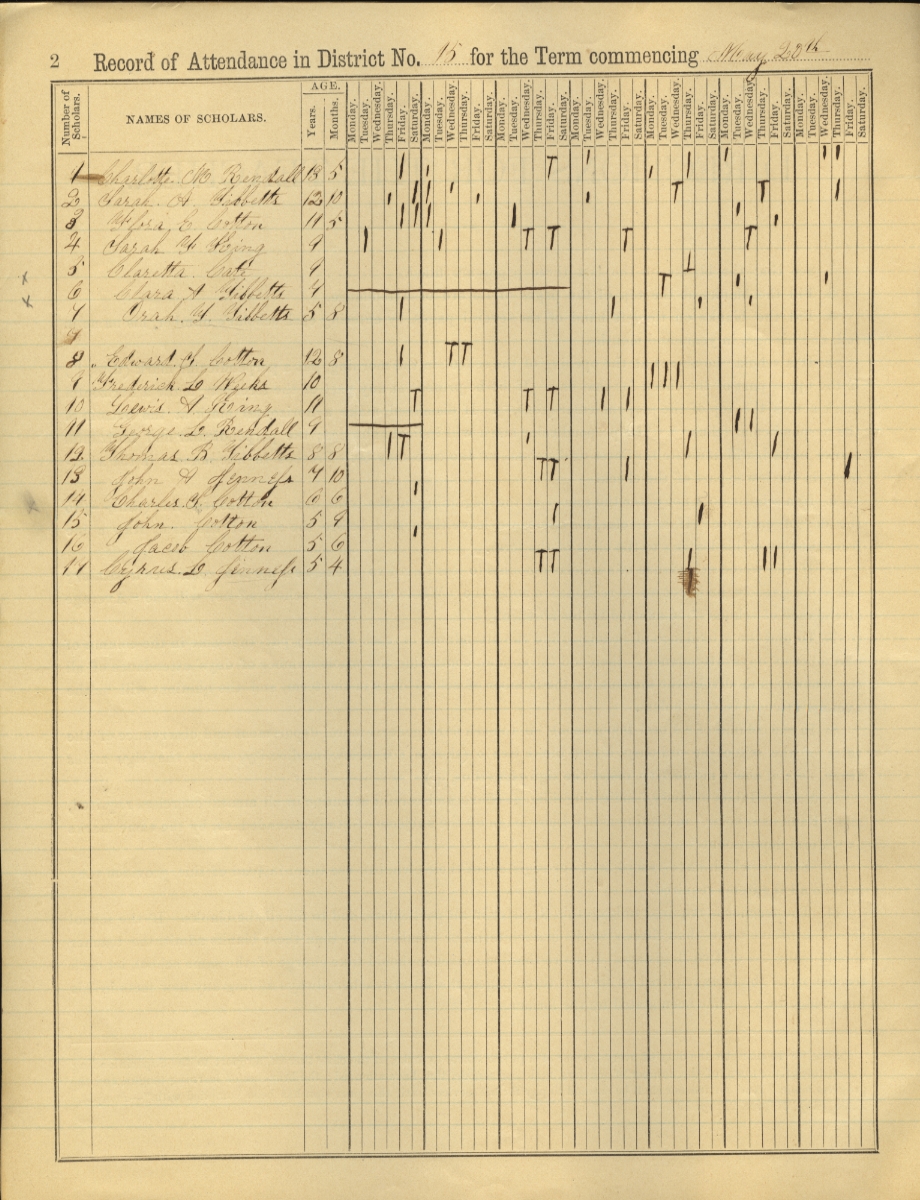 2 Record of Attendance in District No. 15 for the Term commencing May
Number of Scholars. NAMES OF SCHOLARS. AGE. Years. Months. Monday. Tuesday. Wednesday. Thursday. Friday. Saturday. Monday. Tuesday. Wednesday. Thursday. Friday. Saturday. Monday. Tuesday. Wednesday. Thursday. Friday. Saturday. Monday. Tuesday. Wednesday. Thursday. Friday. Saturday. Monday. Tuesday. Wednesday. Thursday. Friday. Saturday. Monday. Tuesday. Wednesday. Thursday. Friday. Saturday. Monday. Tuesday. Wednesday. Thursday. Friday. Saturday.
1 Charlotte M Kendall 13 5 T
2 Sarah A Tibbetts 12 10 T T
3 Flora E Cotton 11 5
4 Sarah F King 9 T T T T
5 Claretta Cate 9
6 Clara A Tibbetts 4 T
7 Orah Y. Tibbetts 5 8
7
8 Edward Cotton 12 8 T T
9 Frederick L Weeks 10
10 Lewis A King 11 T T T
11 George L. Kendall 9
12 Thomas B Tibbetts 8 8 T
13 John A Jenness 7 10 T T
14 Charles S. Cotton 6 6
15 John Cotton 5 9
16 Jacob Cotton 5 6
17 Cyrus L Jenness 5 4 T T